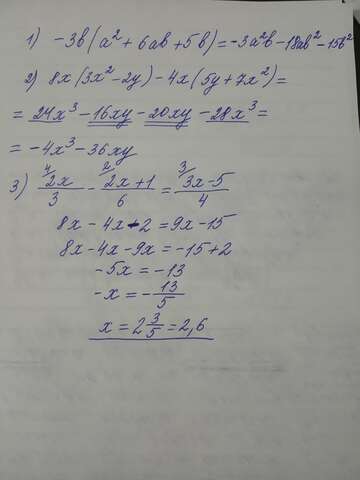 1) -3b(a² + 6ab + 5b) = -3a²b - 18ab² - 15b²
2) 8x(3x² - 2y) - 4x(5y + 7x²) =
= 24x³ - 16xy - 20xy - 28x³ =
= -4x³ - 36xy
3) ⁴⁄2x/3 - ²⁄2x+1/6 = ³⁄3x-5/4
8x - 4x - 2 = 9x - 15
8x - 4x - 9x = -15 + 2
-5x = -13
-x = -13/5
x = 2 3/5 = 2,6